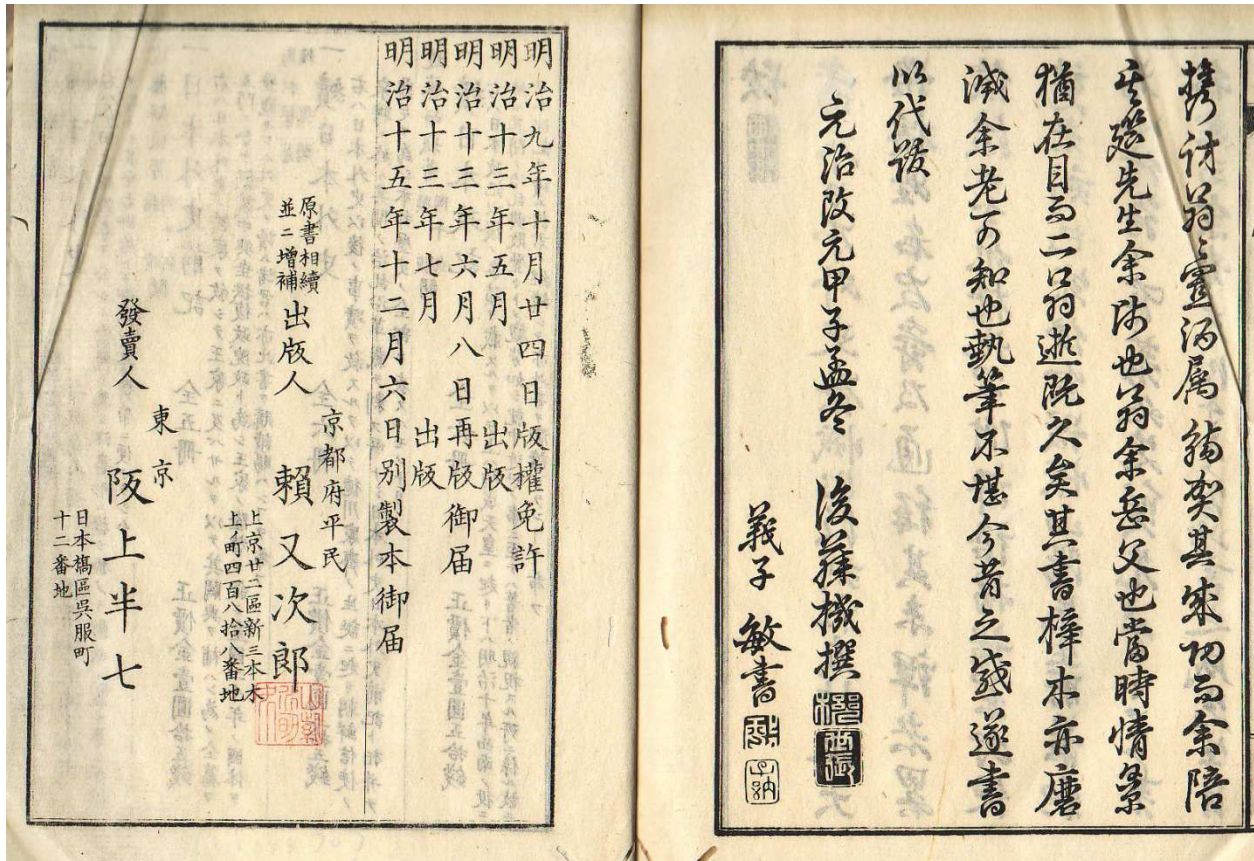 属觴賀其成功而余陪
其筵先生余師也翁余岳父也當時情景
猶在目而二翁逝既久矣其書梓木亦磨
滅余老可知也執筆不堪今昔之感遂書
以代跋
元治改元甲子孟冬 後藤機撰
義子 敏書
明治九年十月廿四日版權免許
明治十三年五月 出版
明治十三年六月八日再版御届
明治十三年七月 出版
明治十五年十二月六日別製本御届
京都府平民
原書相續
並ニ増補
出版人 賴又次郎
上京廿二區新三本木
上町四百八拾八番地
東京
發賣人 阪上半七
日本橋區吳服町
十二番地